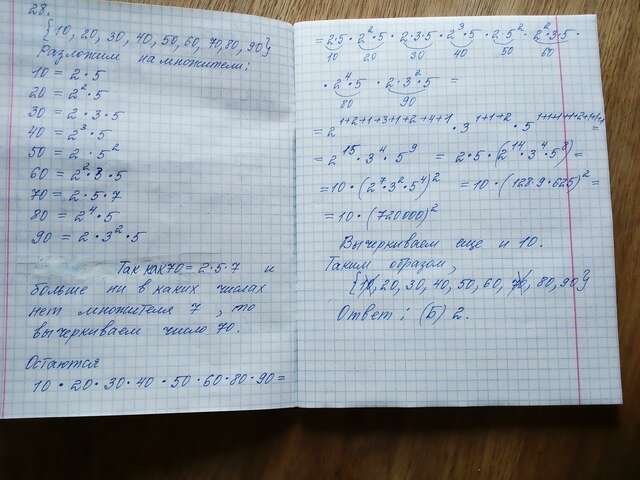 28.
{10, 20, 30, 40, 50, 60, 70, 80, 90}
Разложим на множители:
10 = 2 · 5
20 = 2² · 5
30 = 2 · 3 · 5
40 = 2³ · 5
50 = 2 · 5²
60 = 2² · 3 · 5
70 = 2 · 5 · 7
80 = 2⁴ · 5
90 = 2 · 3² · 5
Так как 70 = 2·5·7 и
больше ни в каких числах
нет множителя 7, то
вычеркиваем число 70.
Остаются
10 · 20 · 30 · 40 · 50 · 60 · 80 · 90 =
= 2·5 · 2²·5 · 2·3·5 · 2³·5 · 2·5² · 2²·3·5 ·
10 20 30 40 50 60
· 2⁴·5 · 2·3²·5 =
80 90
= 2¹⁺²⁺¹⁺³⁺¹⁺²⁺⁴⁺¹ · 3¹⁺¹⁺² · 5¹⁺¹⁺¹⁺¹⁺²⁺¹⁺¹⁺¹ =
= 2¹⁵ · 3⁴ · 5⁹ = 2·5·(2¹⁴·3⁴·5⁸) =
= 10 · (2⁷·3²·5⁴)² = 10 · (128·9·625)² =
= 10 · (720000)²
Вычеркиваем еще и 10.
Таким образом,
{10, 20, 30, 40, 50, 60, 70, 80, 90}
Ответ: (Б) 2.